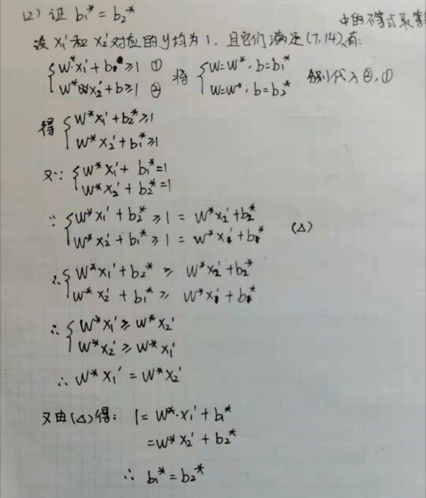 (2) 证 b₁* = b₂*
设 x₁' 和 x₂' 对应的 y 均为 1, 且它们满足 (7.14) 中的不等式
有:
{ w·x₁' + b ≥ 1 ①
w·x₂' + b ≥ 1 ②
将 { w = w*, b = b₁*
w = w*, b = b₂*
分别代入 ②, ①
得 { w*x₁' + b₂* ≥ 1
w*x₂' + b₁* ≥ 1
又∵ { w*x₁' + b₁* = 1
w*x₂' + b₂* = 1
∵ { w*x₁' + b₂* ≥ 1 = w*x₂' + b₂*
w*x₂' + b₁* ≥ 1 = w*x₁' + b₁* (△)
∴ { w*x₁' + b₂* ≥ w*x₂' + b₂*
w*x₂' + b₁* ≥ w*x₁' + b₁*
∴ { w*x₁' ≥ w*x₂'
w*x₂' ≥ w*x₁'
∴ w*x₁' = w*x₂'
又由 (△) 得: 1 = w*·x₁' + b₁*
= w*x₂' + b₂*
∴ b₁* = b₂*